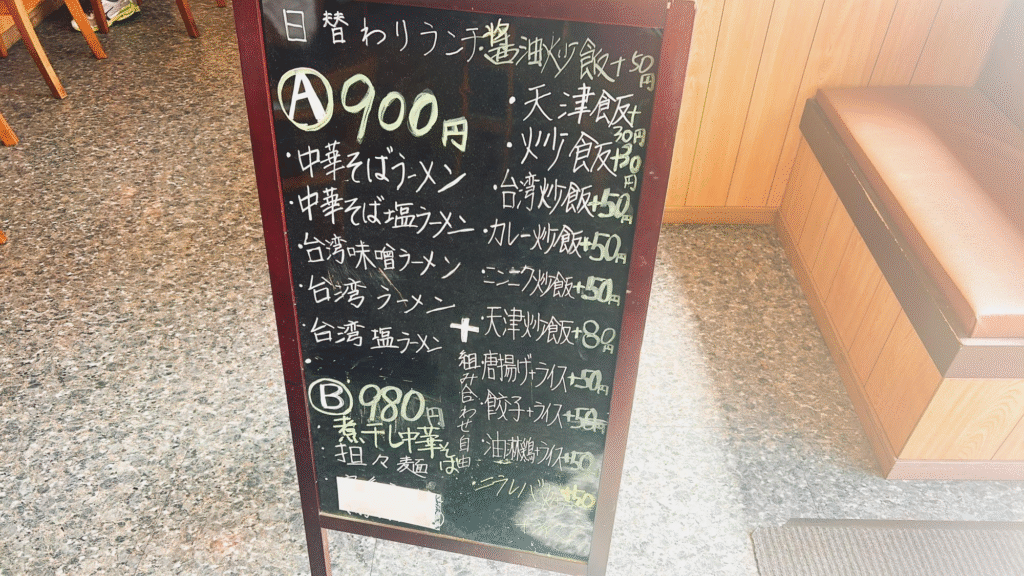 日替わりランチ
Ⓐ900円
・中華そばラーメン
・中華そば塩ラーメン
台湾味噌ラーメン
・台湾ラーメン
・台湾塩ラーメン
Ⓑ980円
・煮干し中華そば
・担々麺
+
組み合わせ自由
・醤油炒飯+50円
・天津飯+30円
・炒飯+30円
・台湾炒飯+50円
・カレー炒飯+50円
ニンニク炒飯+50円
・天津炒飯+80円
・唐揚げ+ライス+50円
・餃子+ライス+50円
・油淋鶏+ライス+50